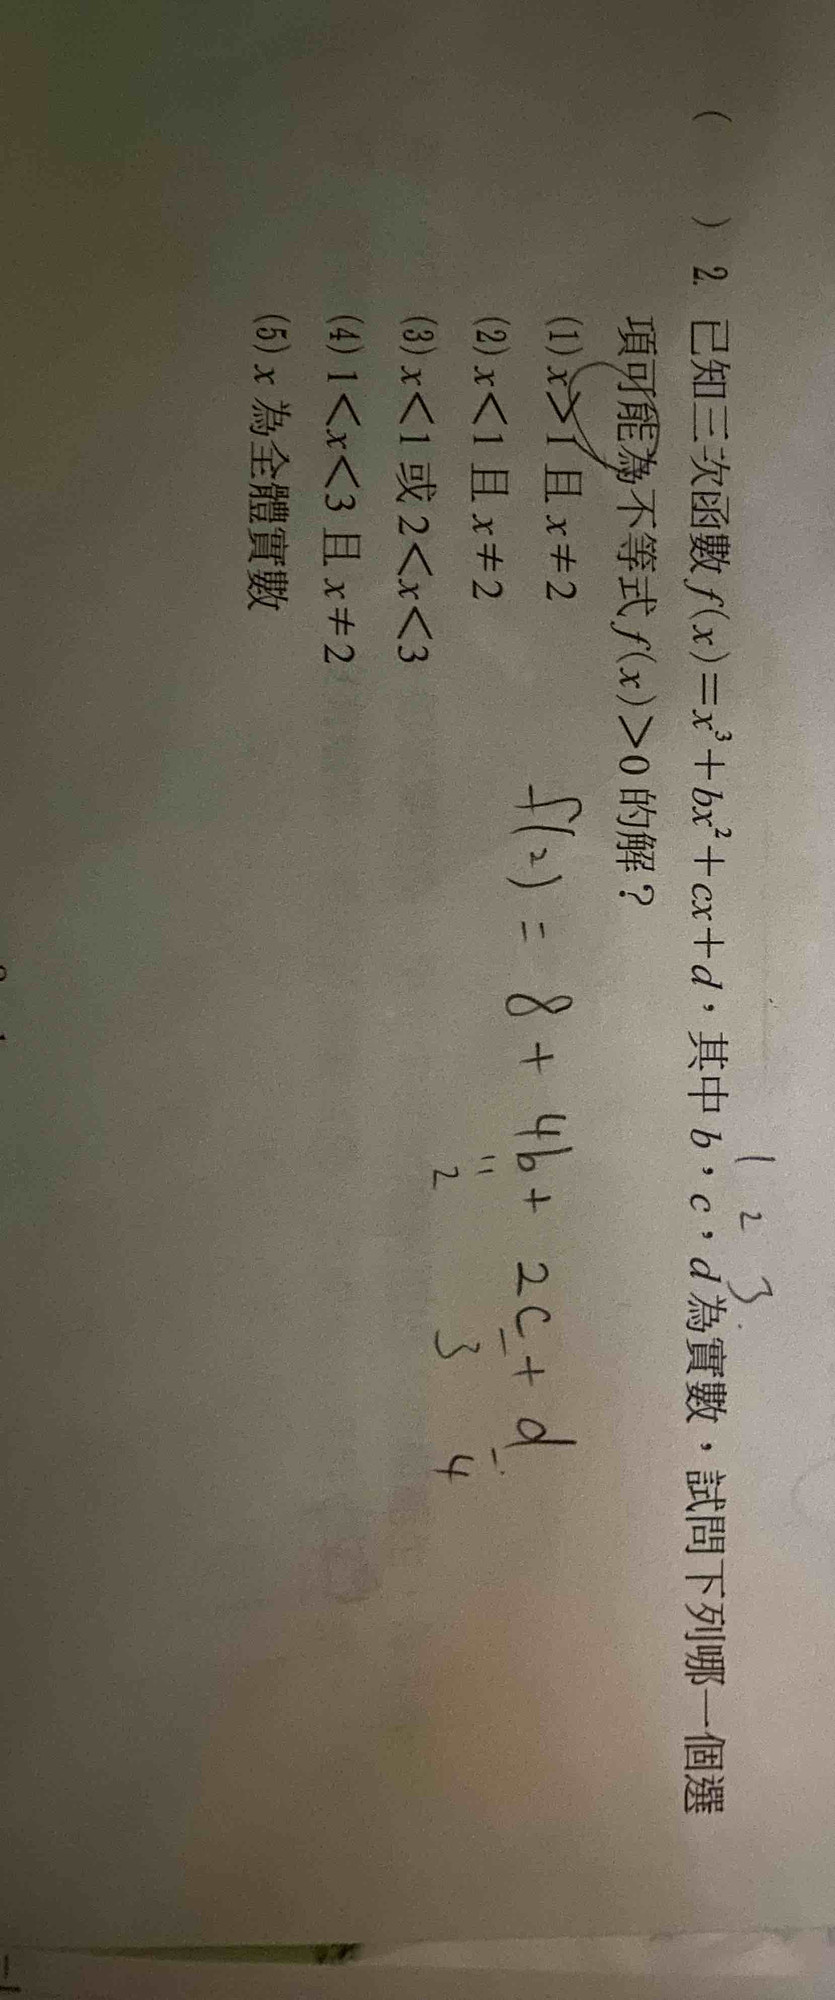 (　　) 2. 已知三次函數 f(x)=x³+bx²+cx+d，其中 b，c，d 為實數，試問下列哪一個選
項可能為不等式 f(x)>0 的解？
(1) x>1 且 x≠2
(2) x<1 且 x≠2
(3) x<1 或 2<x<3
(4) 1<x<3 且 x≠2
(5) x 為全體實數
1 2 3
f(2) = 8 + 4b + 2c + d
2 3 4